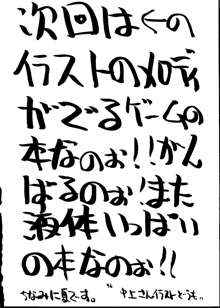 次回は←の
イラストのメロディ
がでるゲームの
本なのぉ!!がん
ばるのぉ!また
液体いっぱい
の本なのぉ!!
ちなみに夏です。 中上さんイラストどうも。